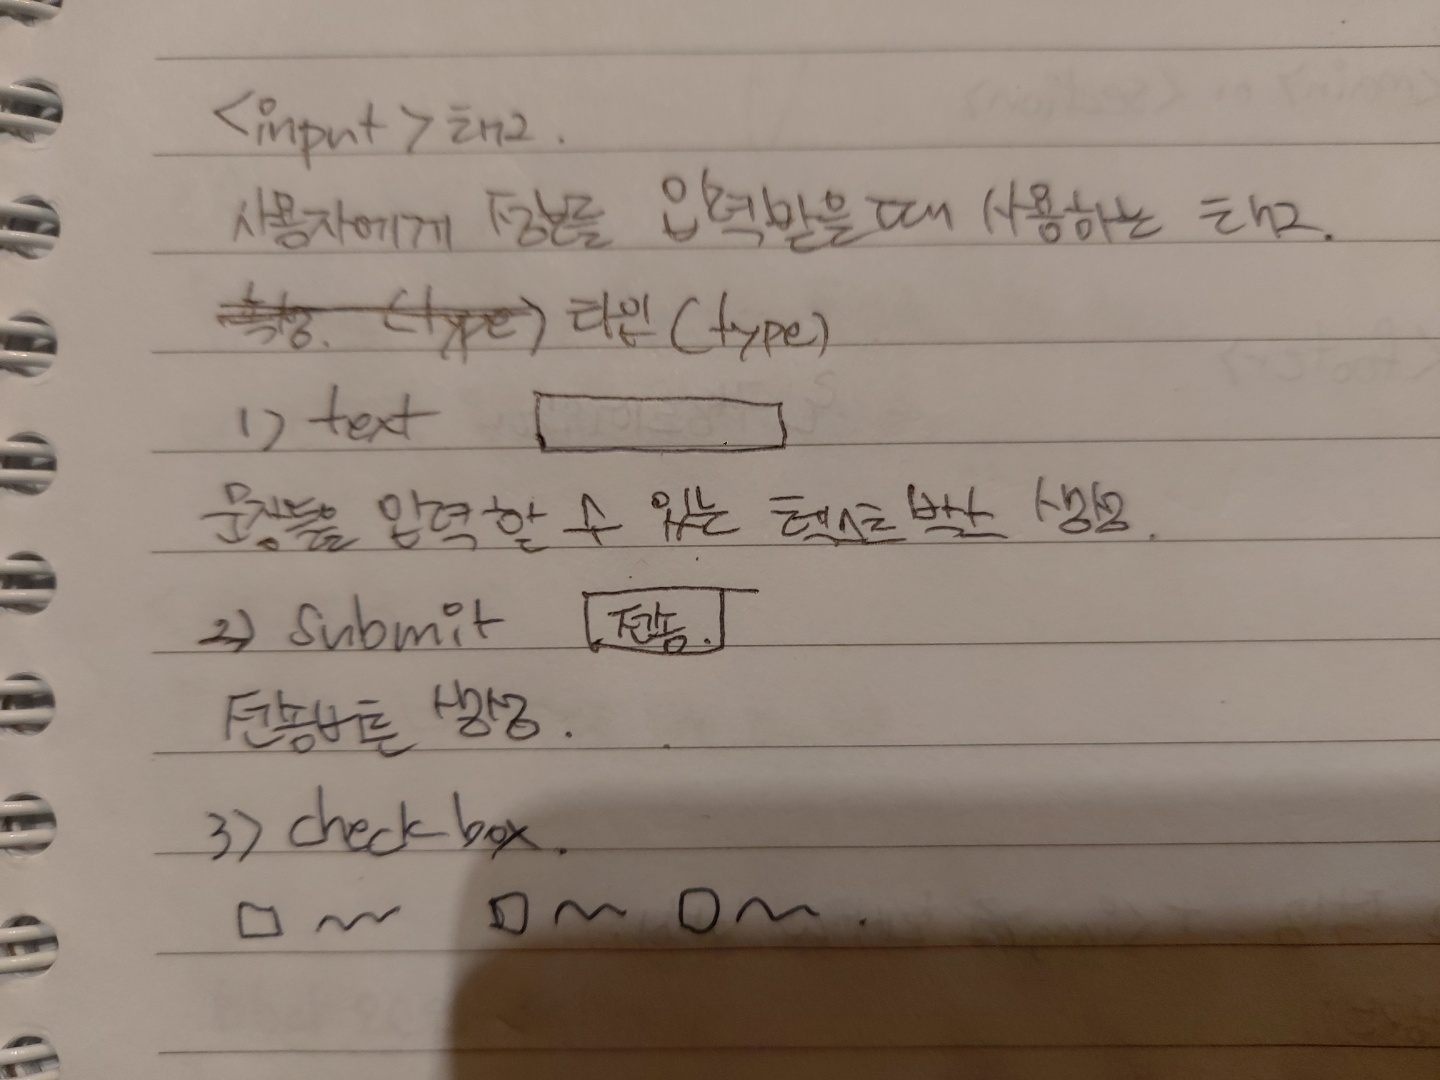 <input> 태그.
사용자에게 정보를 입력받을 때 사용하는 태그.
특징. (type) 타입 (type)
1) text
문장등을 입력할 수 있는 텍스트 박스 생성.
2) submit 전송.
전송버튼 생성.
3) check box.